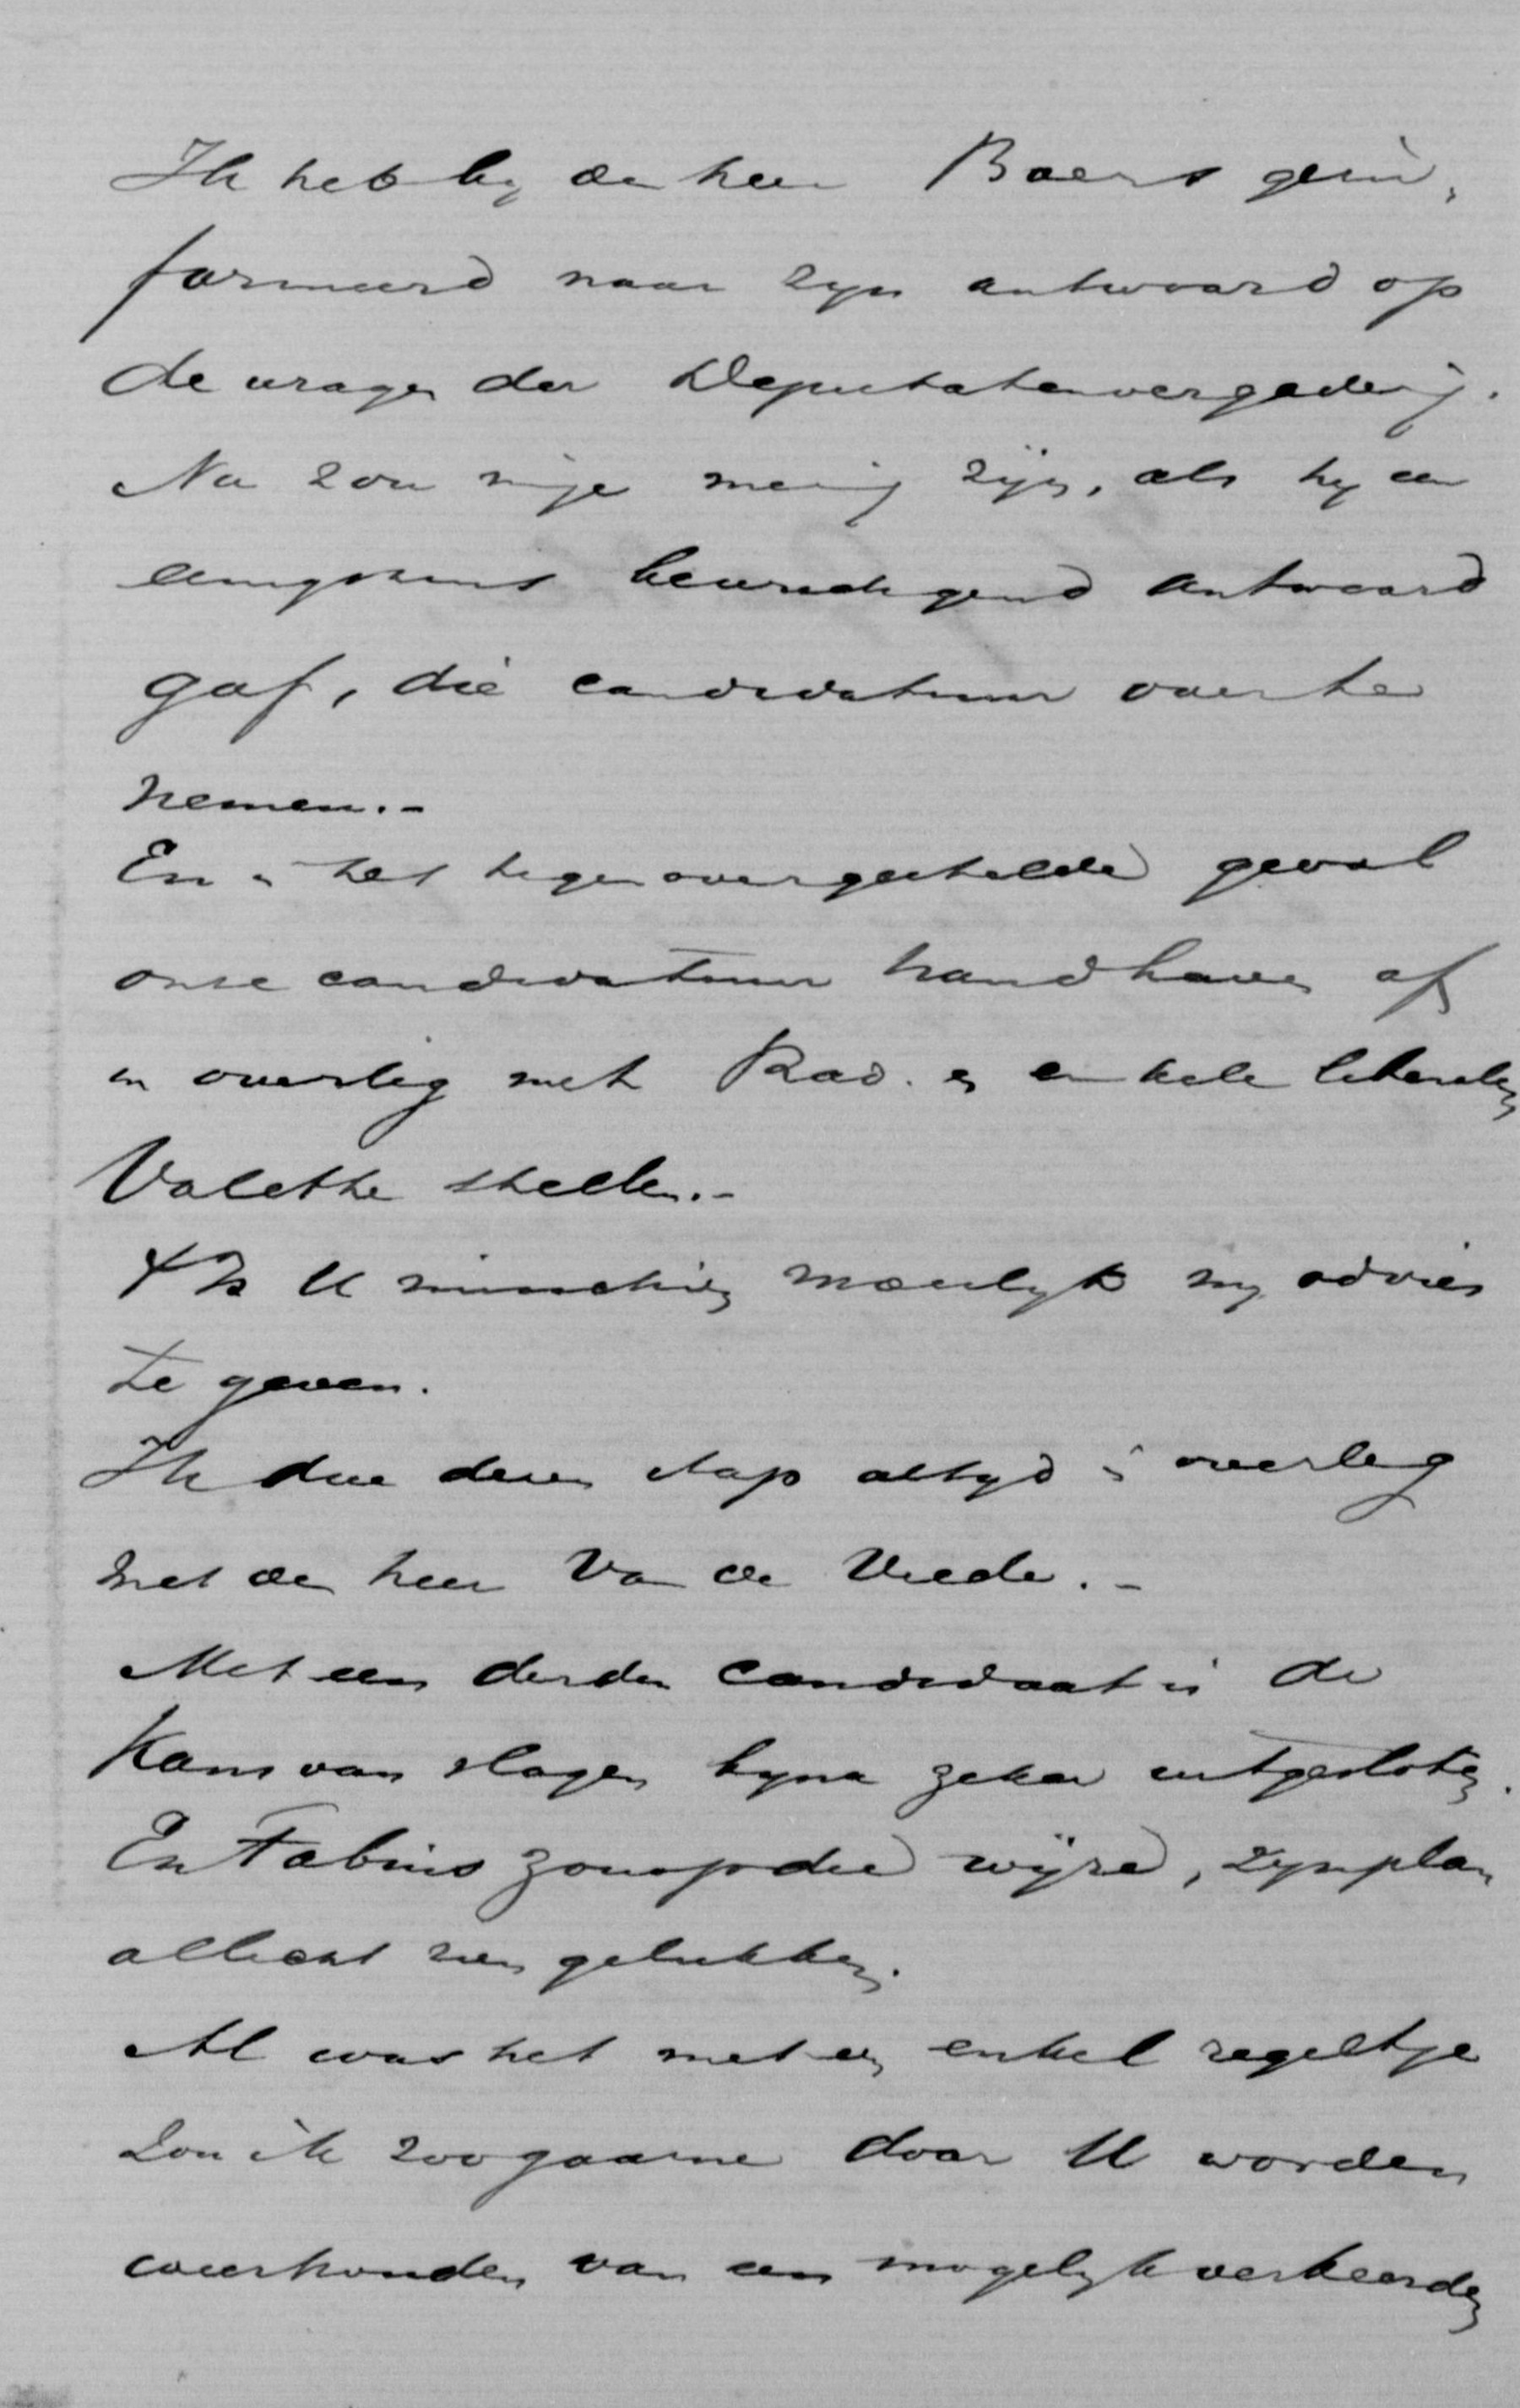 Ik heb by den heer Baers geïn,
formeerd naar zyn antwoord op
de vragen der Deputatenvergadering.
Nu zou myne mening zijn, als hy een
eenigszins bevredigend antwoord
gaf, die candidatuur over te
nemen.-
En in het tegenovergestelde geval
onze candidatuur handhaven of
in overleg met Rad. en enkele liberalen
Valette stellen.-
Is U misschien moeilyk my advies
te geven.
Ik doe dezen stap altyd in overleg
met den heer Van de Vrede.-
Met een derden candidaat is de
Kans van slagen byna zeker uitgesloten.
En Fabius zou op die wijze, zyn plan
allicht zien gelukken.
Al was het met een enkel regeltje
Zou ik zoo gaarne door U worden
weerhouden van een mogelyk verkeerden